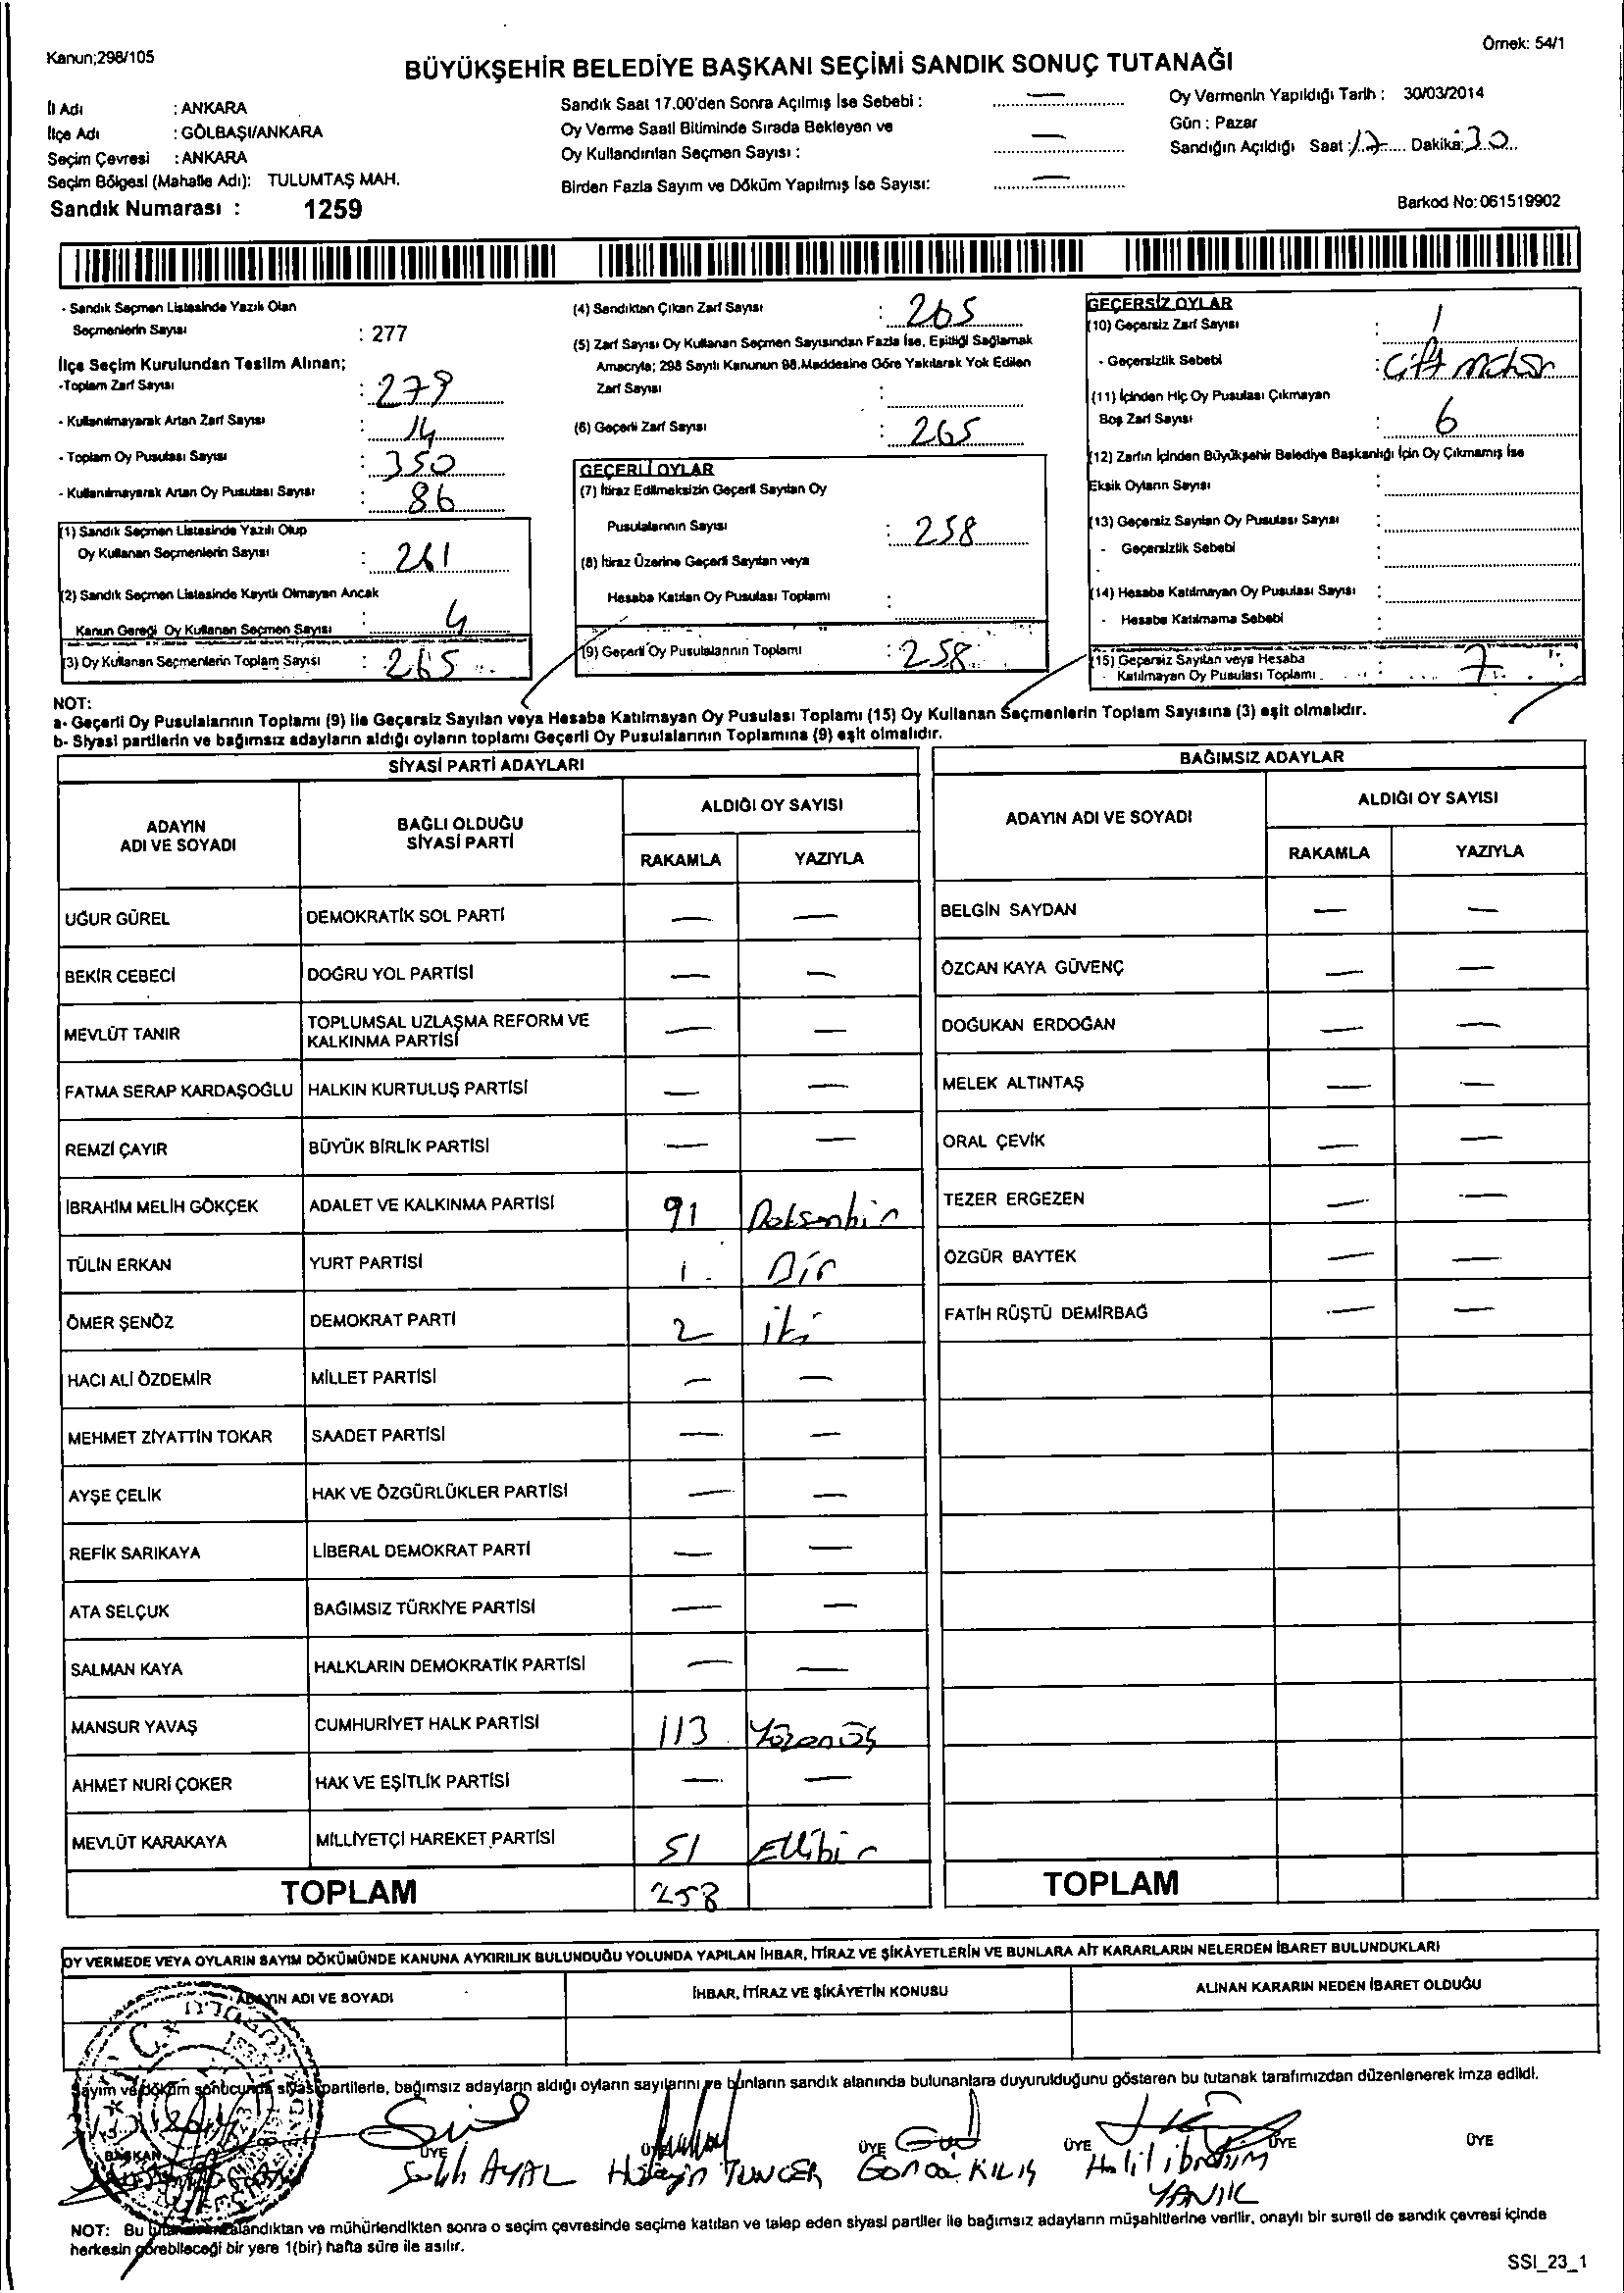 Kanun;298/105
Örnek: 54/1
BÜYÜKŞEHİR BELEDİYE BAŞKANI SEÇİMİ SANDIK SONUÇ TUTANAĞI
İl Adı : ANKARA
İlçe Adı : GÖLBAŞI/ANKARA
Seçim Çevresi : ANKARA
Seçim Bölgesi (Mahalle Adı): TULUMTAŞ MAH.
Sandık Numarası : 1259
Sandık Saat 17.00'den Sonra Açılmış İse Sebebi : —
Oy Verme Saati Bitiminde Sırada Bekleyen ve
Oy Kullandırılan Seçmen Sayısı : —
Birden Fazla Sayım ve Döküm Yapılmış İse Sayısı: —
Oy Vermenin Yapıldığı Tarih : 30/03/2014
Gün : Pazar
Sandığın Açıldığı Saat : 17 Dakika: 30
Barkod No: 061519902
- Sandık Seçmen Listesinde Yazılı Olan
Seçmenlerin Sayısı : 277
İlçe Seçim Kurulundan Teslim Alınan;
-Toplam Zarf Sayısı : 279
- Kullanılmayarak Artan Zarf Sayısı : 14
- Toplam Oy Pusulası Sayısı : 350
- Kullanılmayarak Artan Oy Pusulası Sayısı : 86
(1) Sandık Seçmen Listesinde Yazılı Olup
Oy Kullanan Seçmenlerin Sayısı : 261
(2) Sandık Seçmen Listesinde Kayıtlı Olmayan Ancak
Kanun Gereği Oy Kullanan Seçmen Sayısı : 4
(3) Oy Kullanan Seçmenlerin Toplam Sayısı : 265
(4) Sandıktan Çıkan Zarf Sayısı : 265
(5) Zarf Sayısı Oy Kullanan Seçmen Sayısından Fazla İse, Eşitliği Sağlamak
Amacıyla; 298 Sayılı Kanunun 98.Maddesine Göre Yakılarak Yok Edilen
Zarf Sayısı :
(6) Geçerli Zarf Sayısı : 265
GEÇERLİ OYLAR
(7) İtiraz Edilmeksizin Geçerli Sayılan Oy
Pusulalarının Sayısı : 258
(8) İtiraz Üzerine Geçerli Sayılan veya
Hesaba Katılan Oy Pusulası Toplamı :
(9) Geçerli Oy Pusulalarının Toplamı : 258
GEÇERSİZ OYLAR
(10) Geçersiz Zarf Sayısı : 1
- Geçersizlik Sebebi : Çift mühür
(11) İçinden Hiç Oy Pusulası Çıkmayan
Boş Zarf Sayısı : 6
(12) Zarfın İçinden Büyükşehir Belediye Başkanlığı İçin Oy Çıkmamış İse
Eksik Oyların Sayısı :
(13) Geçersiz Sayılan Oy Pusulası Sayısı :
- Geçersizlik Sebebi :
(14) Hesaba Katılmayan Oy Pusulası Sayısı :
- Hesaba Katılmama Sebebi :
(15) Geçersiz Sayılan veya Hesaba
Katılmayan Oy Pusulası Toplamı : 7
NOT:
a- Geçerli Oy Pusulalarının Toplamı (9) ile Geçersiz Sayılan veya Hesaba Katılmayan Oy Pusulası Toplamı (15) Oy Kullanan Seçmenlerin Toplam Sayısına (3) eşit olmalıdır.
b- Siyasi partilerin ve bağımsız adayların aldığı oyların toplamı Geçerli Oy Pusulalarının Toplamına (9) eşit olmalıdır.
SİYASİ PARTİ ADAYLARI
ADAYIN ADI VE SOYADI
BAĞLI OLDUĞU SİYASİ PARTİ
ALDIĞI OY SAYISI
RAKAMLA YAZIYLA
UĞUR GÜREL DEMOKRATİK SOL PARTİ — —
BEKİR CEBECİ DOĞRU YOL PARTİSİ — —
MEVLÜT TANIR TOPLUMSAL UZLAŞMA REFORM VE KALKINMA PARTİSİ — —
FATMA SERAP KARDAŞOĞLU HALKIN KURTULUŞ PARTİSİ — —
REMZİ ÇAYIR BÜYÜK BİRLİK PARTİSİ — —
İBRAHİM MELİH GÖKÇEK ADALET VE KALKINMA PARTİSİ 91 Doksanbir
TÜLİN ERKAN YURT PARTİSİ 1 Bir
ÖMER ŞENÖZ DEMOKRAT PARTİ 2 iki
HACI ALİ ÖZDEMİR MİLLET PARTİSİ — —
MEHMET ZİYATTİN TOKAR SAADET PARTİSİ — —
AYŞE ÇELİK HAK VE ÖZGÜRLÜKLER PARTİSİ — —
REFİK SARIKAYA LİBERAL DEMOKRAT PARTİ — —
ATA SELÇUK BAĞIMSIZ TÜRKİYE PARTİSİ — —
SALMAN KAYA HALKLARIN DEMOKRATİK PARTİSİ — —
MANSUR YAVAŞ CUMHURİYET HALK PARTİSİ 113 Yüzonüş
AHMET NURİ ÇOKER HAK VE EŞİTLİK PARTİSİ — —
MEVLÜT KARAKAYA MİLLİYETÇİ HAREKET PARTİSİ 51 Ellibir
TOPLAM 258
BAĞIMSIZ ADAYLAR
ADAYIN ADI VE SOYADI
ALDIĞI OY SAYISI
RAKAMLA YAZIYLA
BELGİN SAYDAN — —
ÖZCAN KAYA GÜVENÇ — —
DOĞUKAN ERDOĞAN — —
MELEK ALTINTAŞ — —
ORAL ÇEVİK — —
TEZER ERGEZEN — —
ÖZGÜR BAYTEK — —
FATİH RÜŞTÜ DEMİRBAĞ — —
TOPLAM
OY VERMEDE VEYA OYLARIN SAYIM DÖKÜMÜNDE KANUNA AYKIRILIK BULUNDUĞU YOLUNDA YAPILAN İHBAR, İTİRAZ VE ŞİKÂYETLERİN VE BUNLARA AİT KARARLARIN NELERDEN İBARET BULUNDUKLARI
ADAYIN ADI VE SOYADI
İHBAR, İTİRAZ VE ŞİKÂYETİN KONUSU
ALINAN KARARIN NEDEN İBARET OLDUĞU
Sayım ve döküm sonucunda siyasi partilerle, bağımsız adayların aldığı oyların sayılarını ve bunların sandık alanında bulunanlara duyurulduğunu gösteren bu tutanak tarafımızdan düzenlenerek imza edildi.
BAŞKAN ÜYE ÜYE ÜYE ÜYE ÜYE ÜYE
Salih AYAL Hüseyin TUNCER Gonca KILIÇ Halil ibrahim
YANIK
NOT: Bu imzalandıktan ve mühürlendikten sonra o seçim çevresinde seçime katılan ve talep eden siyasi partiler ile bağımsız adayların müşahitlerine verilir, onaylı bir sureti de sandık çevresi içinde
herkesin görebileceği bir yere 1(bir) hafta süre ile asılır.
SSI_23_1